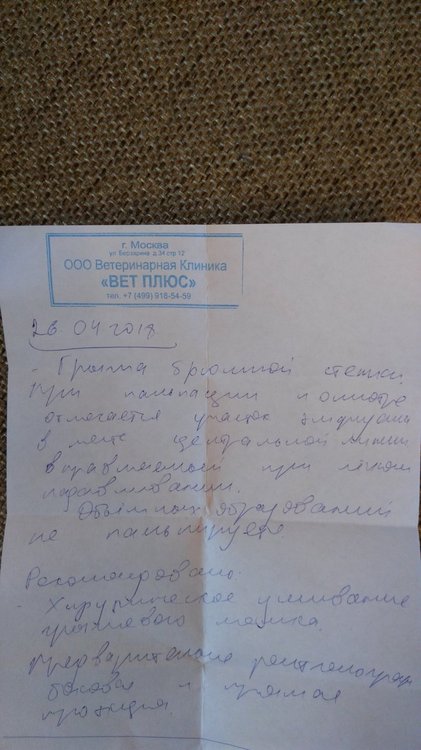 г. Москва
ул Берзарина д.34 стр 12
ООО Ветеринарная Клиника
«ВЕТ ПЛЮС»
тел. +7 (499) 916-54-59
26 04 2018
- Грыжа брюшной стенки.
При пальпации и осмотре
отмечается участок
в месте центральной линии
вправляемый при лёгком
надавливании.
Объёмных образований
не пальпируется
Рекомендовано:
- Хирургическое ушивание
грыжевого мешка.
Предварительно рентгенограф
боковая и прямая
проекция.